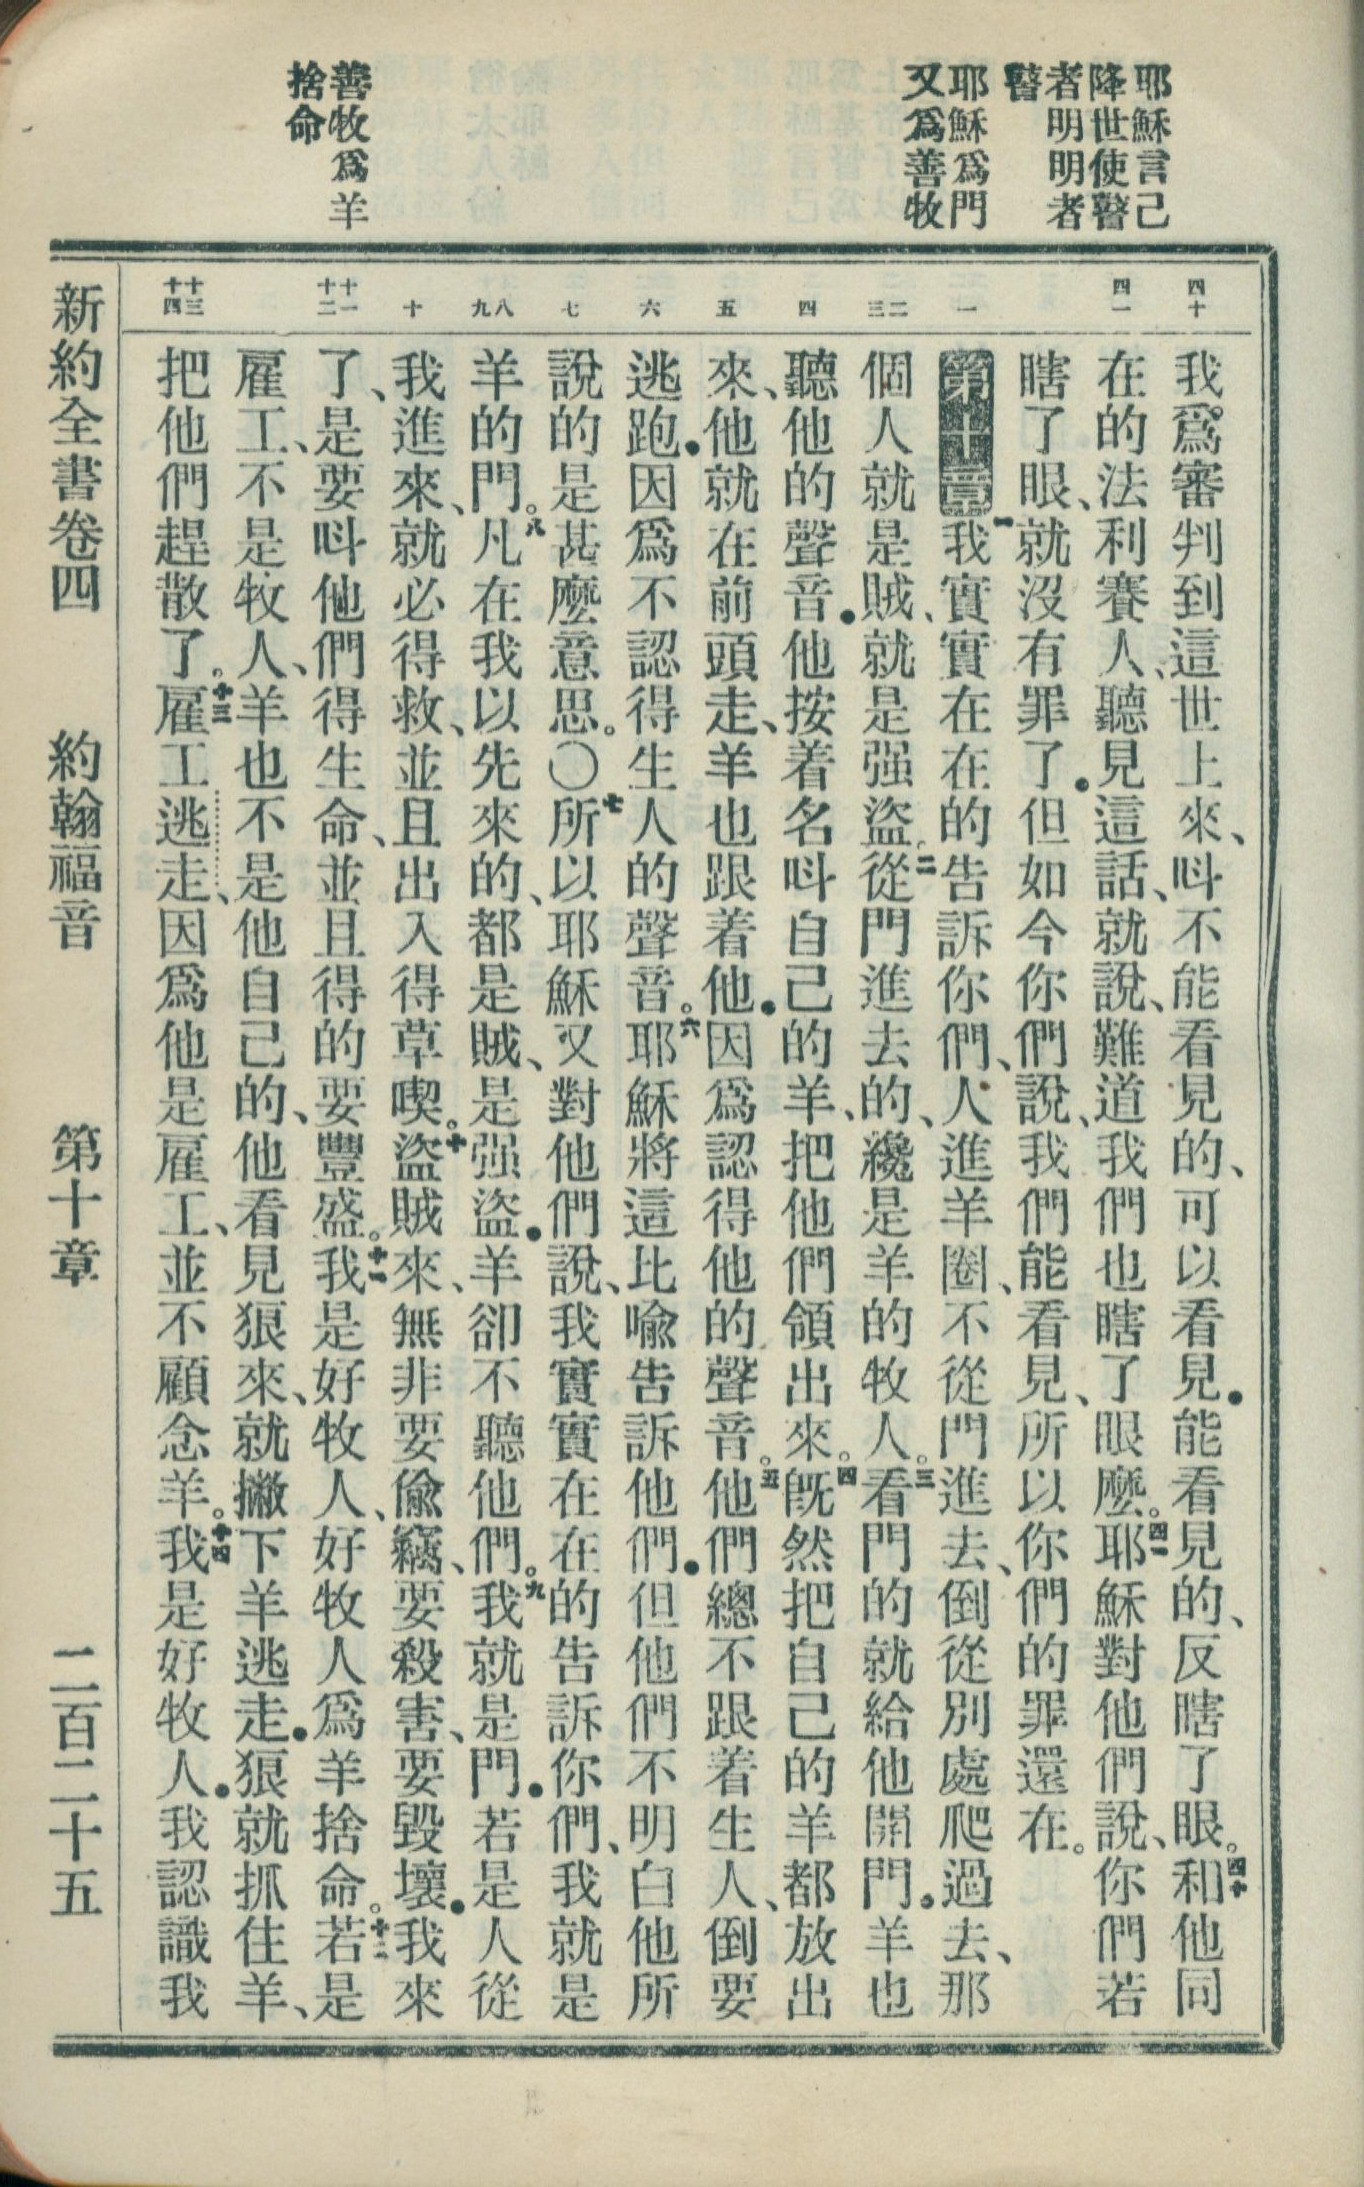 耶穌言己
降世使瞽
者明明者
瞽
耶穌爲門
又爲善牧
善牧爲羊
捨命
四十
四一
一
二
三
四
五
六
七
八
九
十
十一
十二
十三
十四
我爲審判到這世上來、呌不能看見的、可以看見．能看見的、反瞎了眼。四十和他同
在的法利賽人、聽見這話、就說、難道我們也瞎了眼麼。四一耶穌對他們說、你們若
瞎了眼、就沒有罪了．但如今你們說、我們能看見、所以你們的罪還在。
第十章一我實實在在的告訴你們、人進羊圈、不從門進去、倒從別處爬過去、那
個人就是賊、就是强盜。二從門進去的、纔是羊的牧人。三看門的就給他開門．羊也
聽他的聲音．他按着名呌自己的羊、把他們領出來。四旣然把自己的羊都放出
來、他就在前頭走、羊也跟着他．因爲認得他的聲音。五他們總不跟着生人、倒要
逃跑．因爲不認得生人的聲音。六耶穌將這比喩告訴他們．但他們不明白他所
說的是甚麼意思。〇七所以耶穌又對他們說、我實實在在的告訴你們、我就是
羊的門。八凡在我以先來的、都是賊、是强盜．羊卻不聽他們。九我就是門．若是人從
我進來、就必得救、並且出入得草喫。十盜賊來、無非要偸竊、要殺害、要毀壞．我來
了、是要呌他們得生命、並且得的要豐盛。十一我是好牧人、好牧人爲羊捨命。十二若是
雇工、不是牧人、羊也不是他自己的、他看見狼來、就撇下羊逃走．狼就抓住羊、
把他們趕散了。十三雇工逃走、因爲他是雇工、並不顧念羊。十四我是好牧人．我認識我
新約全書卷四　約翰福音　第十章　二百二十五